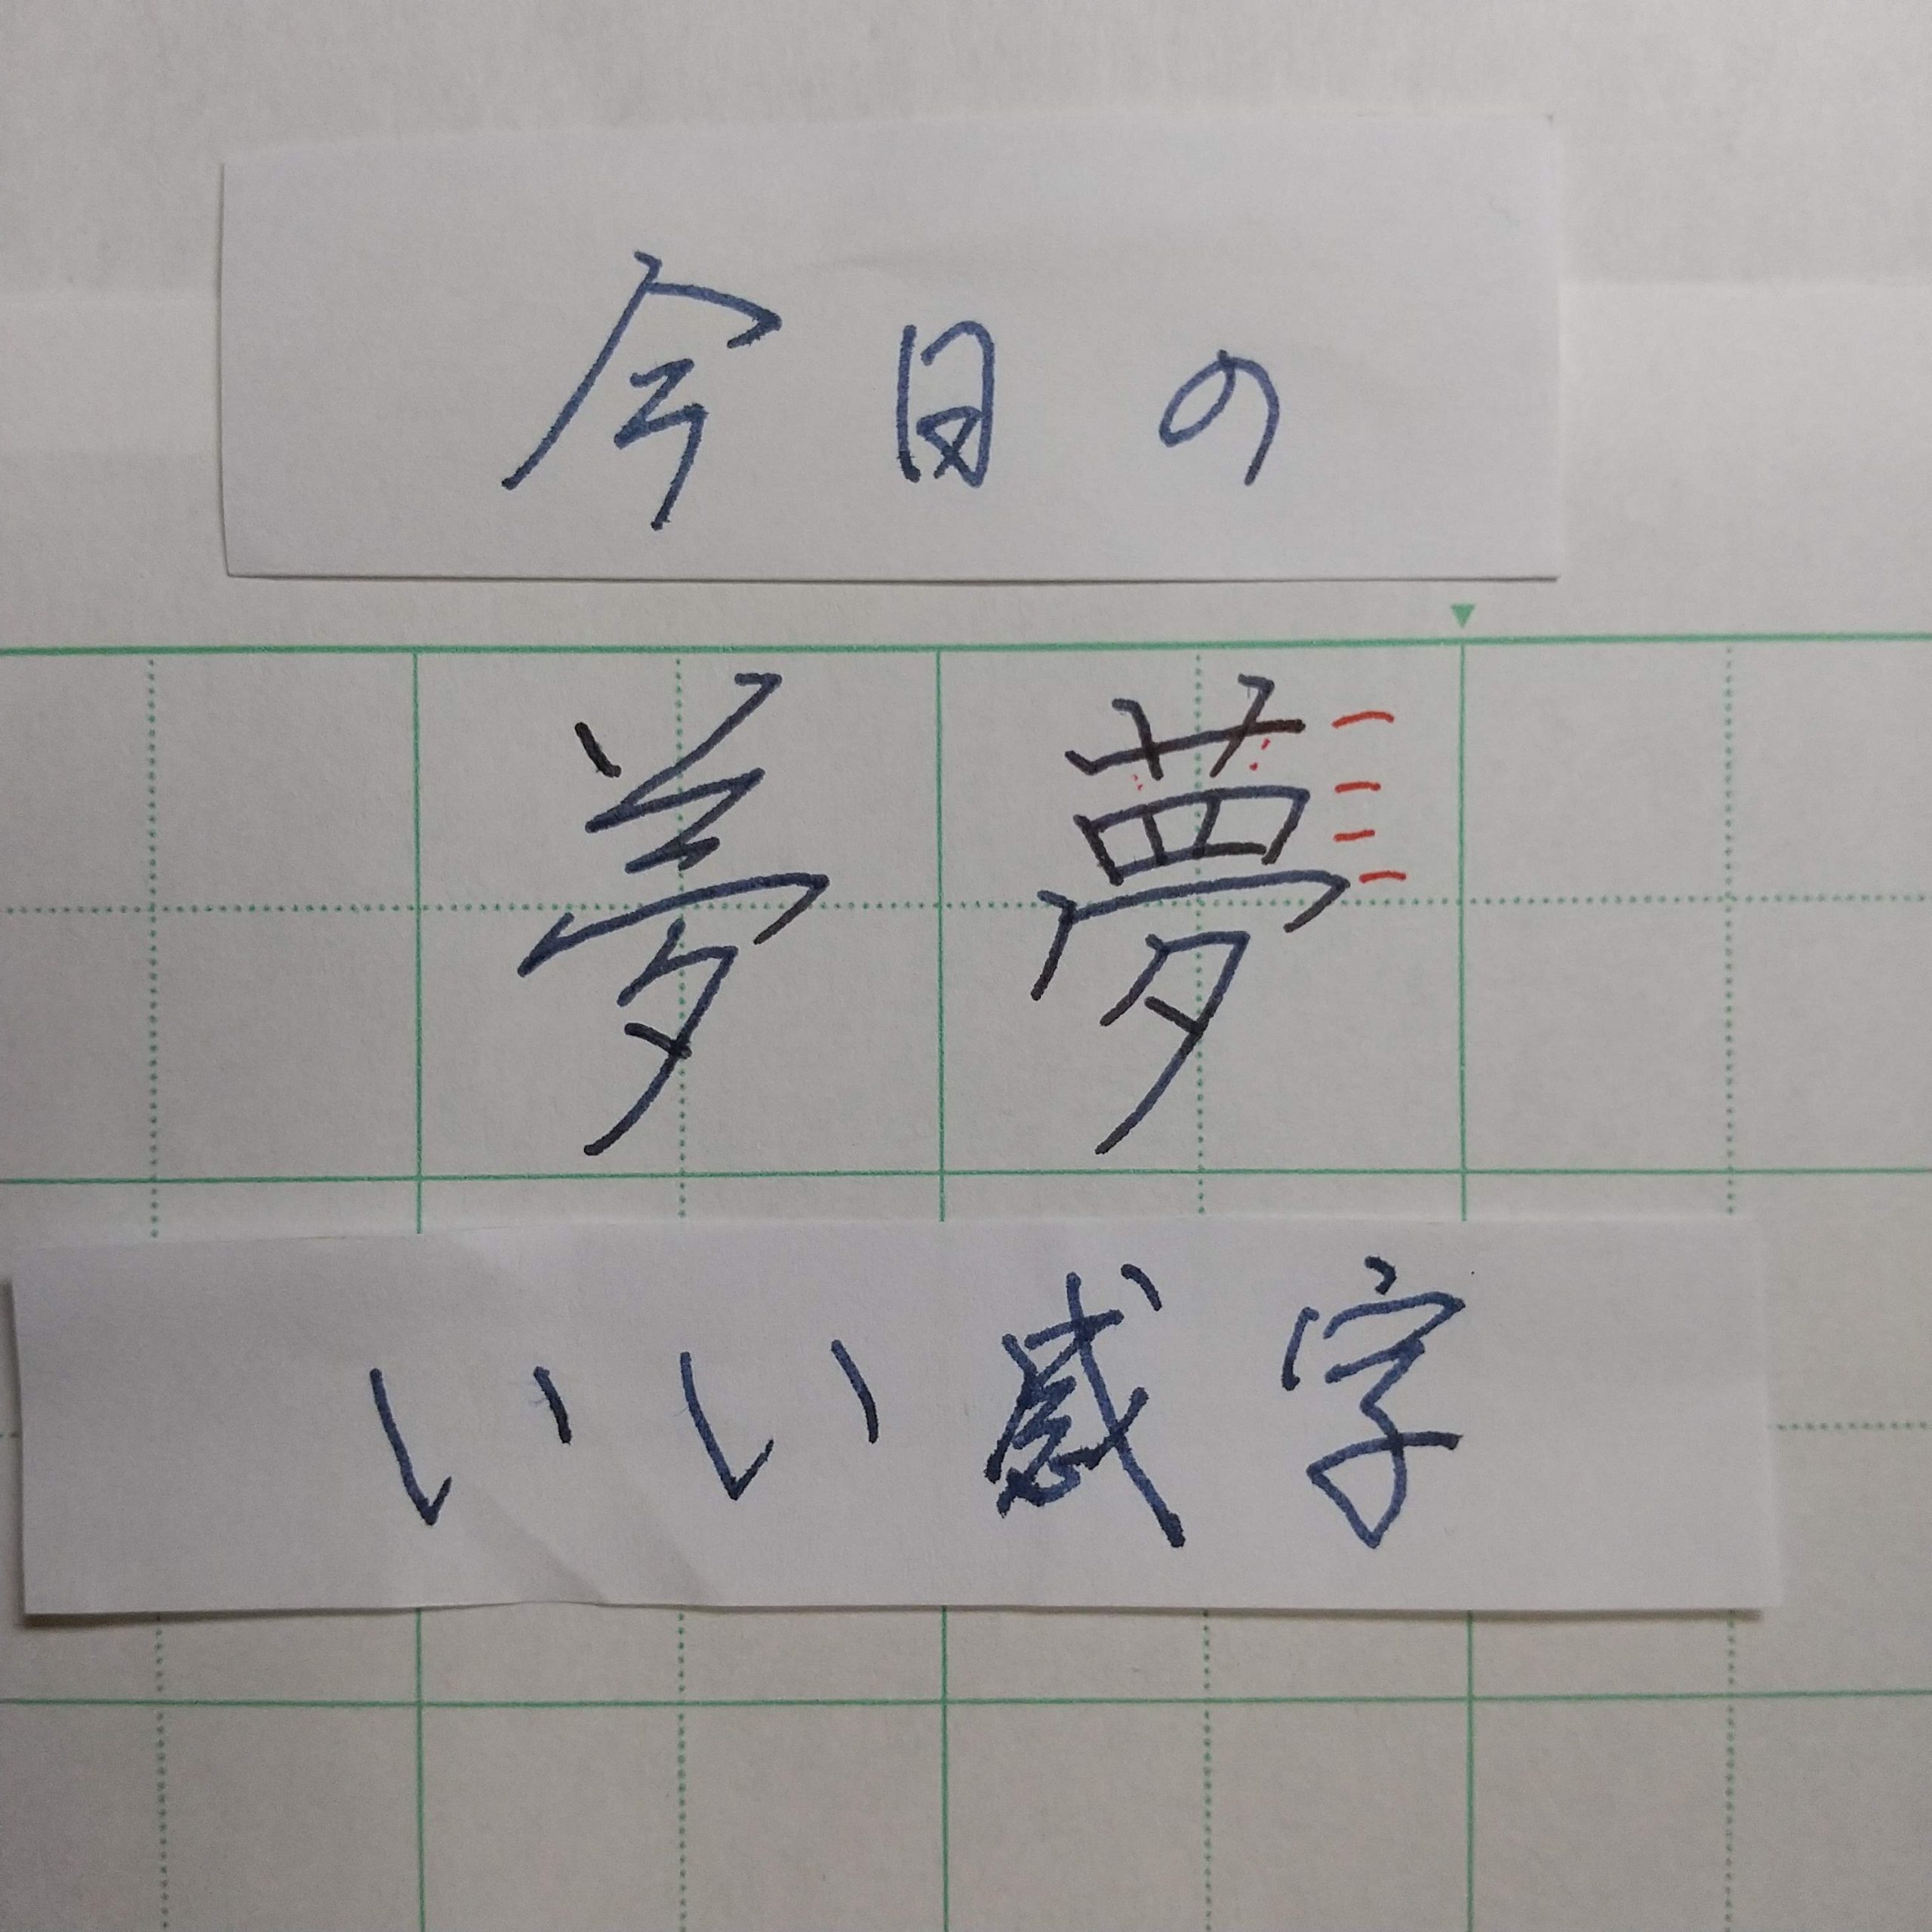 今日の
夢夢
いい感字